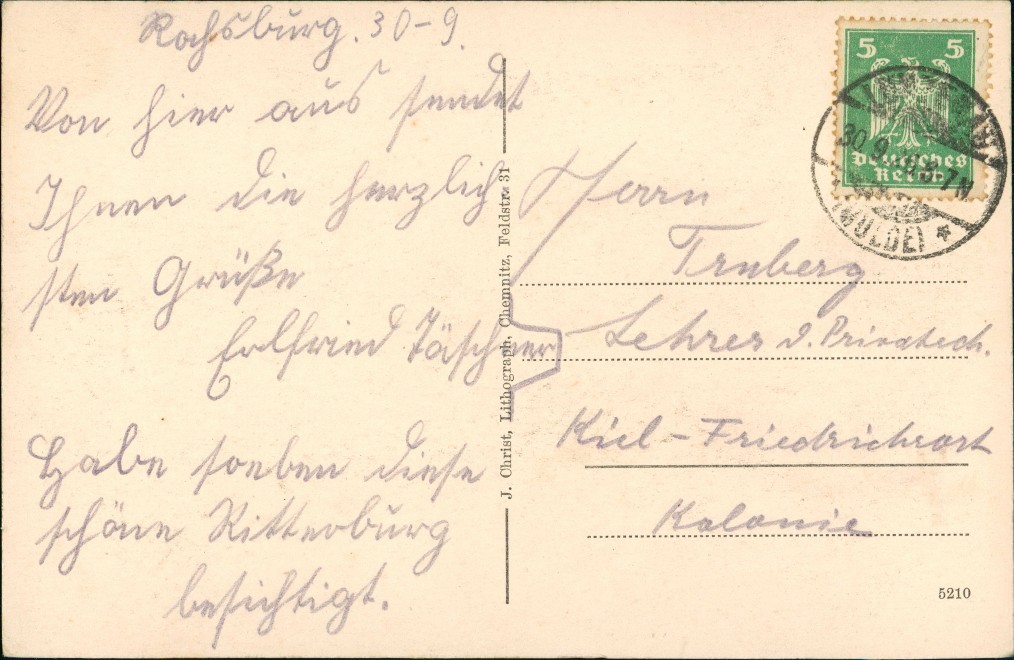 Rochsburg. 30-9.
Von hier aus sendet
Ihnen die herzlich
sten Grüße
Erlfried Täschner
Habe soeben diese
schöne Ritterburg
besichtigt.
J. Christ, Lithograph, Chemnitz, Feldstr. 31
5 5
Deutsches
Reich
30.9.
7N
(MULDE) *
Herrn
Truberg
Lehrer d. Privatsch.
Kiel-Friedrichsort
Kolonie
5210